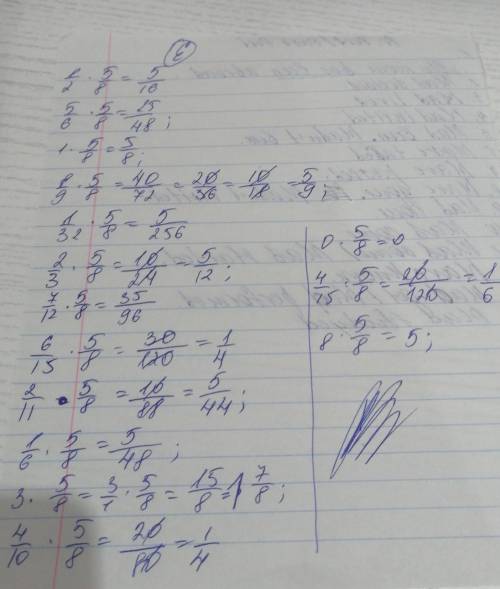 Е
1/2 · 5/8 = 5/16
5/6 · 5/8 = 25/48;
1 · 5/8 = 5/8;
8/9 · 5/8 = 40/72 = 20/36 = 10/18 = 5/9;
1/32 · 5/8 = 5/256
2/3 · 5/8 = 10/24 = 5/12;
7/12 · 5/8 = 35/96
6/15 · 5/8 = 30/120 = 1/4
2/11 · 5/8 = 10/88 = 5/44;
1/6 · 5/8 = 5/48;
3 · 5/8 = 3/1 · 5/8 = 15/8 = 1 7/8;
4/10 · 5/8 = 20/80 = 1/4
0 · 5/8 = 0
4/15 · 5/8 = 20/120 = 1/6
8 · 5/8 = 5;